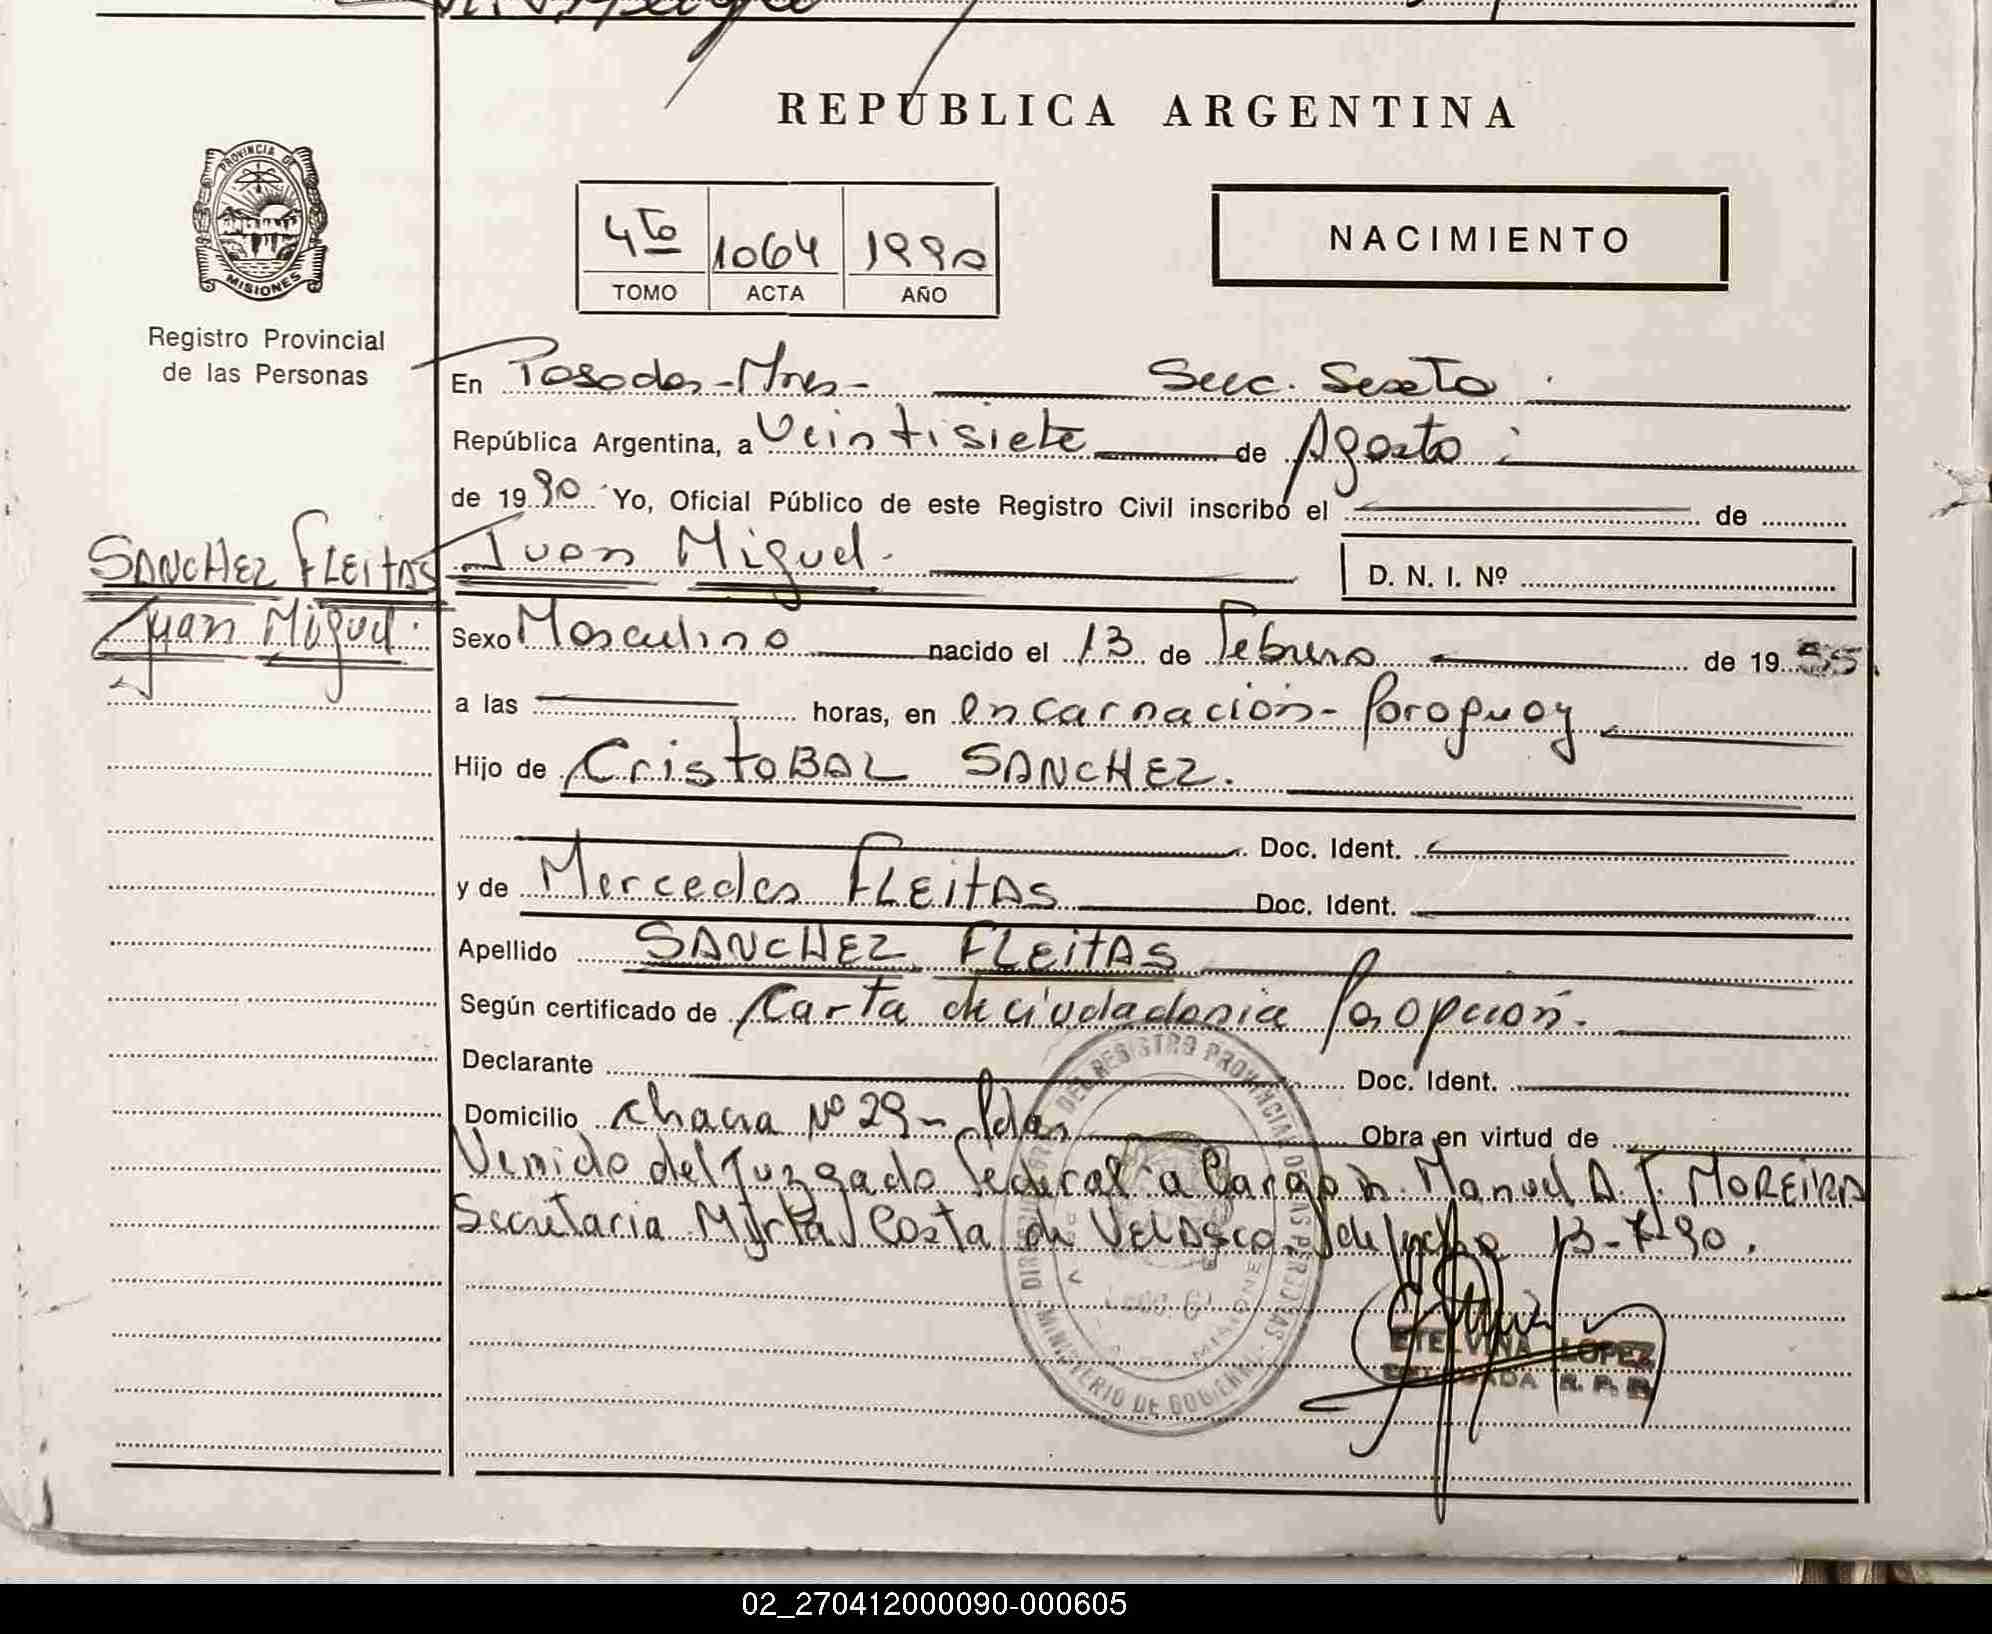 REPUBLICA ARGENTINA
PROVINCIA DE
MISIONES
Registro Provincial
de las Personas
4to 1064 1990
TOMO ACTA AÑO
NACIMIENTO
En Posadas-Mnes- Secc. Sexta
República Argentina, a Veintisiete de Agosto
de 1990 Yo, Oficial Público de este Registro Civil inscribo el de
SANCHEZ FLEITAS
Juan Miguel.
Juan Miguel.
D. N. I. Nº
Sexo Masculino nacido el 13 de Febrero de 19
a las horas, en encarnación-Paraguay
Hijo de CristoBAL SANCHEZ.
Doc. Ident.
y de Mercedes FLEitAS Doc. Ident.
Apellido SANCHEZ FLEitAS
Según certificado de Carta de ciudadania Por opción.
Declarante Doc. Ident.
Domicilio Chacra Nº 29- Pdas Obra en virtud de
Venido del Juzgado Federal a Cargo Dr. Manuel A. J. MOREiRA
Secretaria Myrta Costa de VELASCO de fecha 13-7-90.
DEL REGISTRO PROVINCIAL DE LAS PERSONAS
MINISTERIO DE GOBIERNO
MISIONES
ETELVINA LOPEZ
DELEGADA R. P. P.
02_270412000090-000605